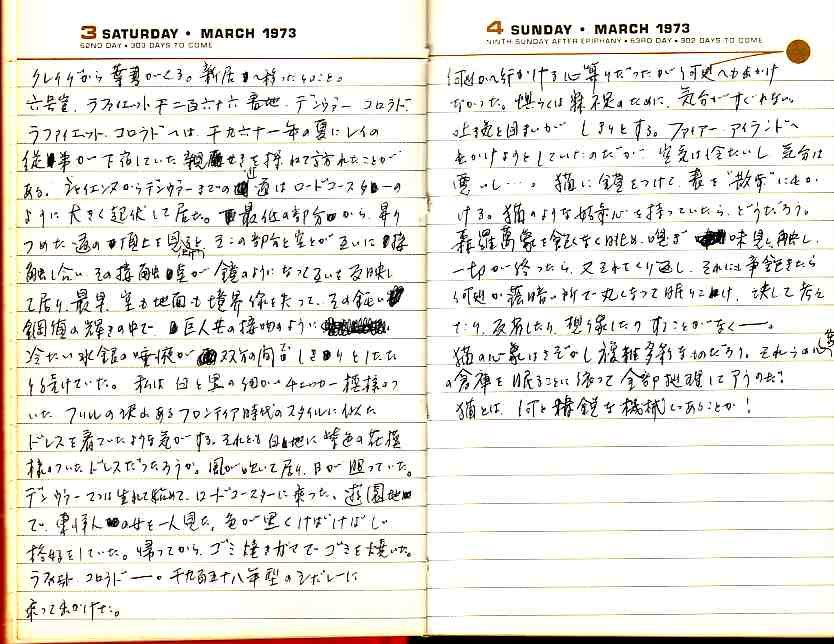 3 SATURDAY • MARCH 1973
62ND DAY • 303 DAYS TO COME
クレイグから葉書がくる。新居へ移ったとのこと。
六号室、ラファイエット 千二百六十六番地、デンヴァー コロラド
ラファイエット、コロラドへは、千九六十一年の夏にレイの
従事が下宿していた を訪ねて訪れたことが
ある。シャイエンヌからデンヴァーまでの道はロードコースターの
ように大きく起伏して居た。最低の部分から、昇り
つめた道の頂上を見ると、そこの部分と空とが互いに接
触し合い、その接触の空が鏡のようになって互いを反映し
て居り、最早、空も地面も境界線を失って、その鈍い
鋼値の輝きの中で、巨人共の接吻のように
冷たい水銀の唾液が双方の間をしきりとしたた
り続けていた。私は白と黒の細かいチェッカー模様のつ
いた フリルの沢山あるフロンティア時代のスタイルに似た
ドレスを着ていたような気がする。それとも白地に紫色の花模
様のついたドレスだったろうか。風が吹いて居り、日が照っていた。
デンヴァーでは生れて始めて、ロードコースターに乗った。遊園地
で、東洋人の女を一人見た。色が黒くけばけばしい
格好をしていた。帰ってから、ゴミ焼きガマでゴミを焼いた。
ラファイエット コロラド—。千九百五十八年型のシボレーに
乗って出かけた。
4 SUNDAY • MARCH 1973
NINTH SUNDAY AFTER EPIPHANY • 63RD DAY • 302 DAYS TO COME
何処かへ行かける心算りだったが何処へも出かけ
なかった。恐らくは寝不足のために、気分がすぐれない。
吐き気と目まいがしきりとする。ファイアー・アイランドへ
出かけようとしていたのだが、空気は冷たいし、気分は
悪いし…。猫に鎖をつけて、表を"散歩"に出か
ける。猫のような好奇心を持っていたら、どうだろう。
森羅万象を飽くなく眺め、嗅ぎ、味見し、触し、
一切が終ったら、又それをくり返し、それにも飽きたら
何処か薄暗い所で丸くなって眠りこけ、決して考え
たり、反省したり、想う象したりすることがなく—。
猫の心象はさぞかし複雑多彩なものだろう。それらの心象
の倉庫を眠ることに依って全部処理して了うのだ!
猫とは、何と精鋭な機械であることか!